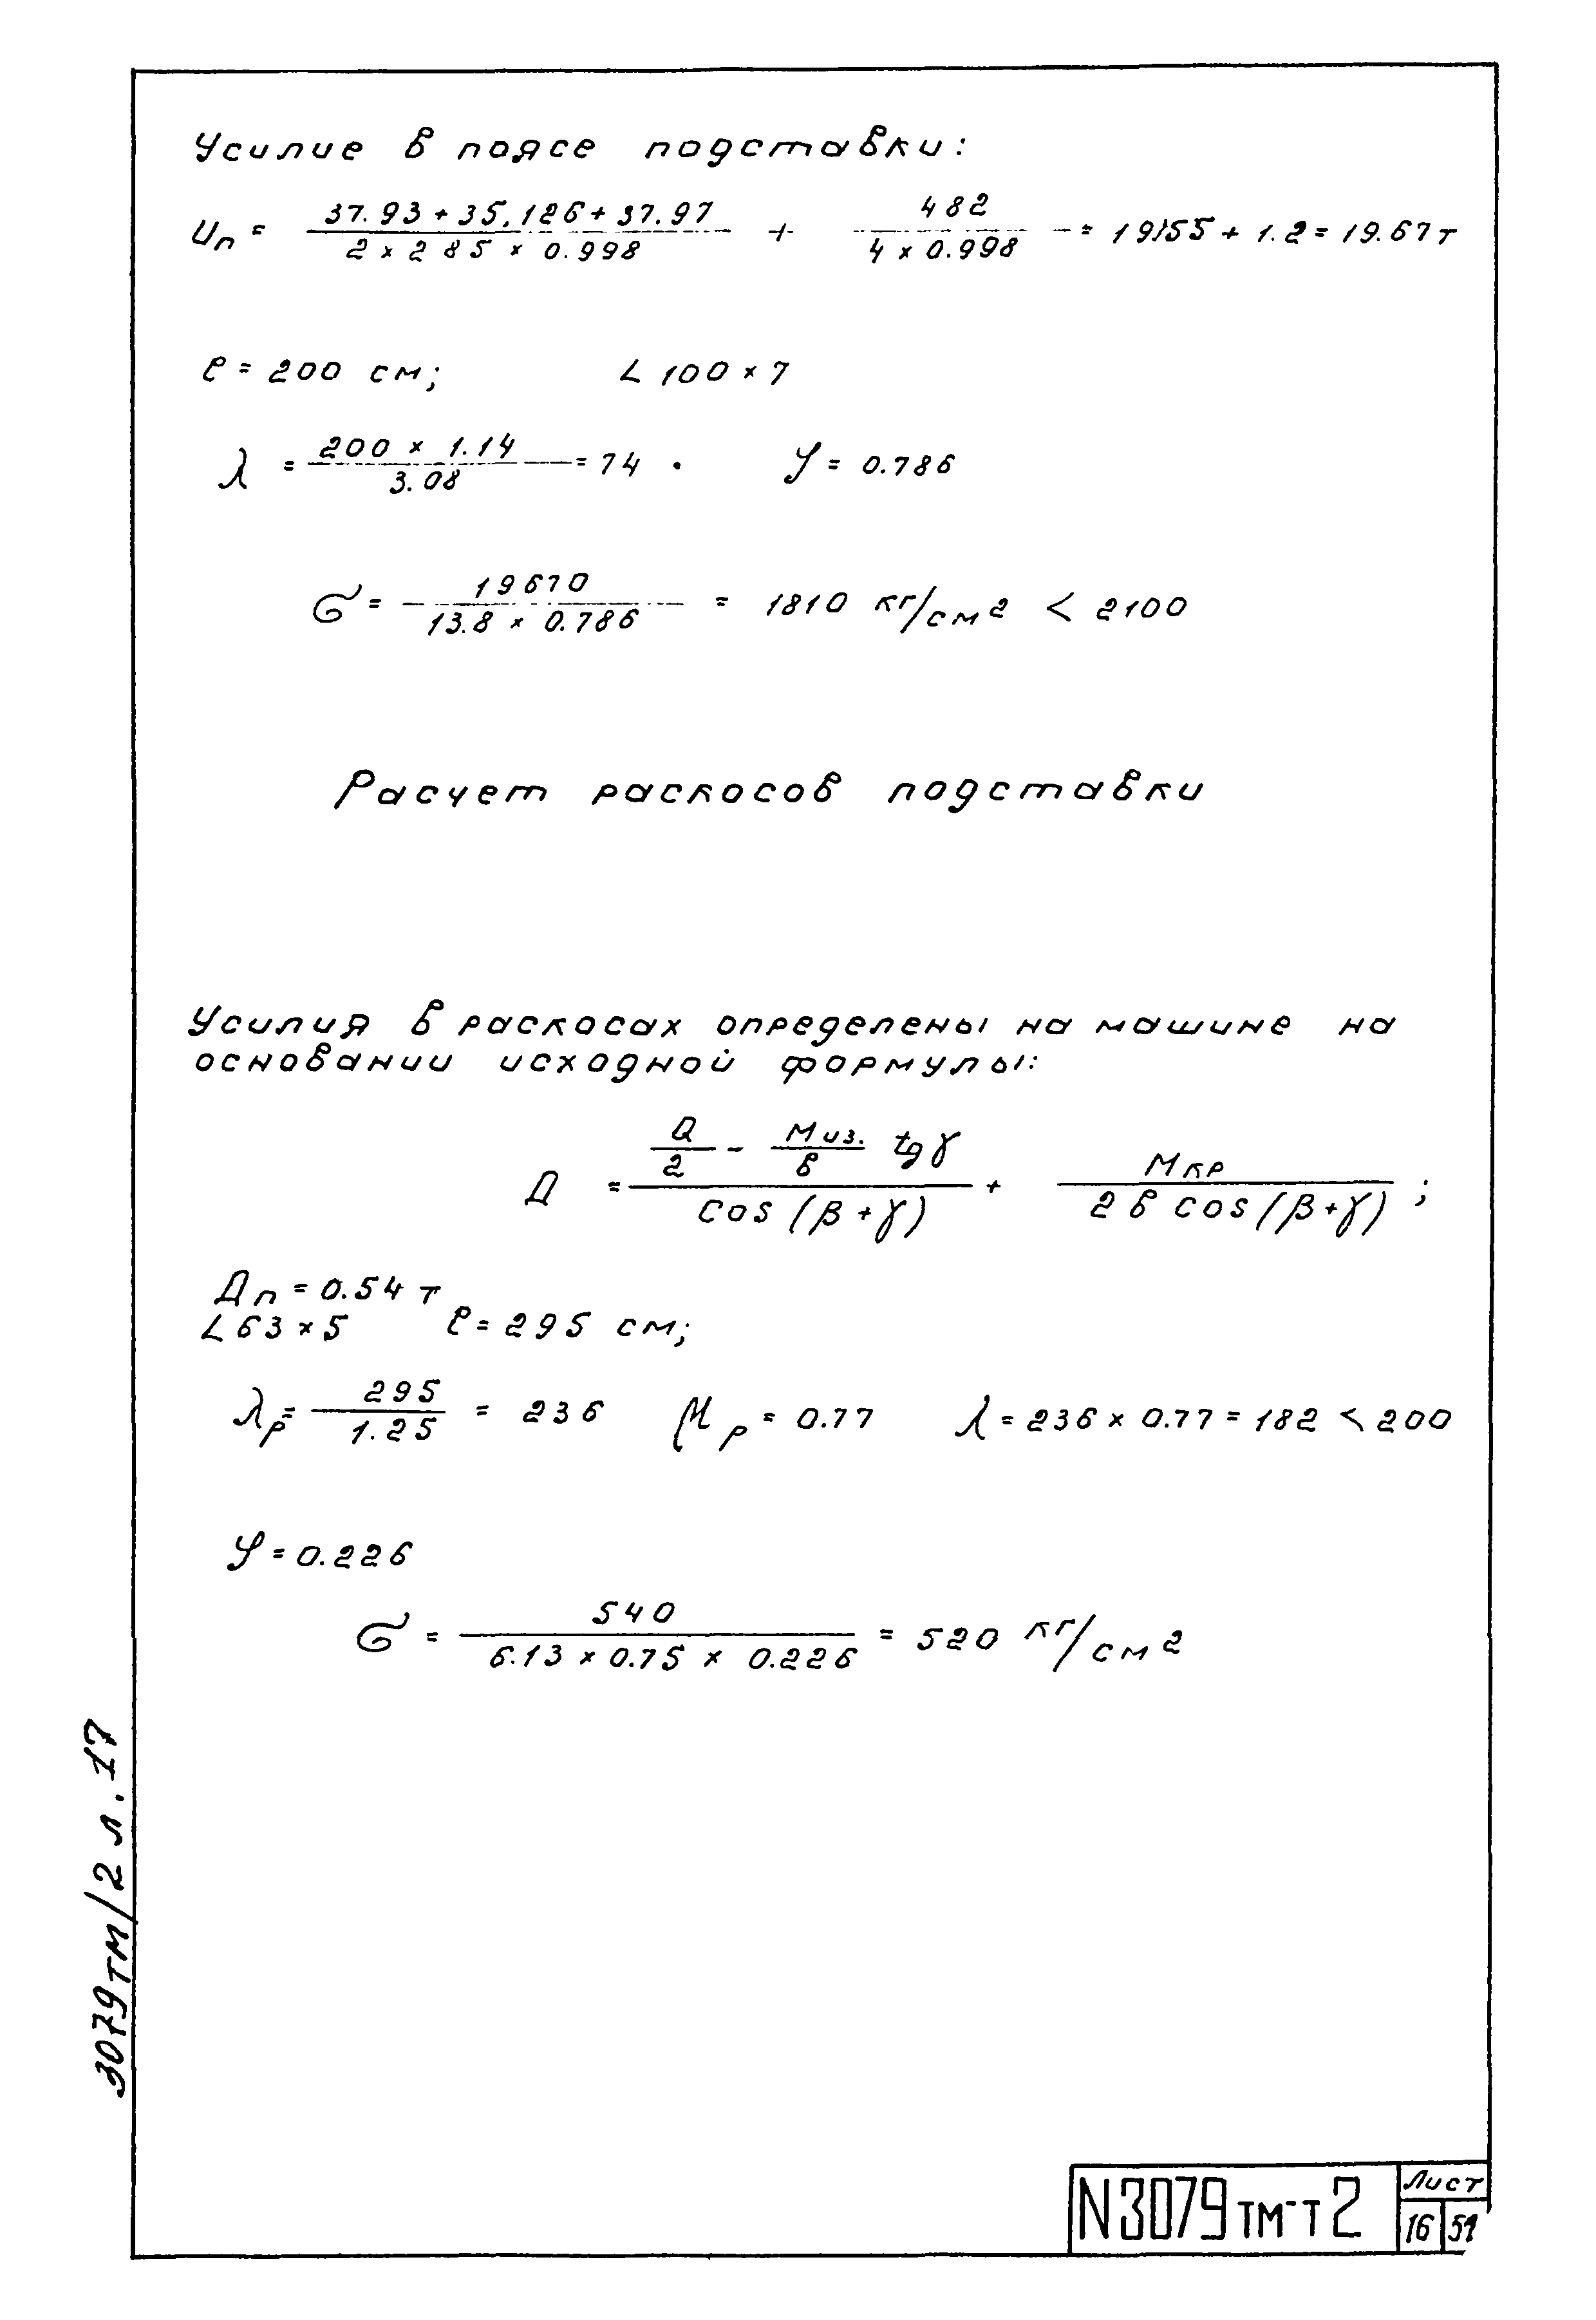 Усилие в поясе подставки:
Uп = (37.93 + 35.126 + 37.97) / (2 × 285 × 0.998) + 482 / (4 × 0.998) = 19155 + 1.2 = 19.67 т
ℓ = 200 см; L 100 × 7
λ = (200 × 1.14) / 3.08 = 74 · φ = 0.786
σ = 19670 / (13.8 × 0.786) = 1810 кг/см2 < 2100
Расчет раскосов подставки
Усилия в раскосах определены на машине на
основании исходной формулы:
Д = (Q/2 - Mиз./в tgγ) / cos(β+γ) + Mкр / (2в cos(β+γ)) ;
Дп = 0.54 т
L 63 × 5 ℓ = 295 см;
λр = 295 / 1.25 = 236 μр = 0.77 λ = 236 × 0.77 = 182 < 200
φ = 0.226
σ = 540 / (6.13 × 0.75 × 0.226) = 520 кг/см2
3079тм/2 л.17
N3079тм-т2
Лист
16 51